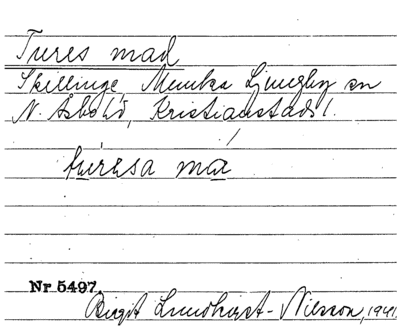 Tures mad
Skillinge, Munka Ljungby sn
N. Åsbo hd, Kristianstads l.
turesa ma
Nr 5497.
Birgit Lundqvist-Nilsson, 1941.